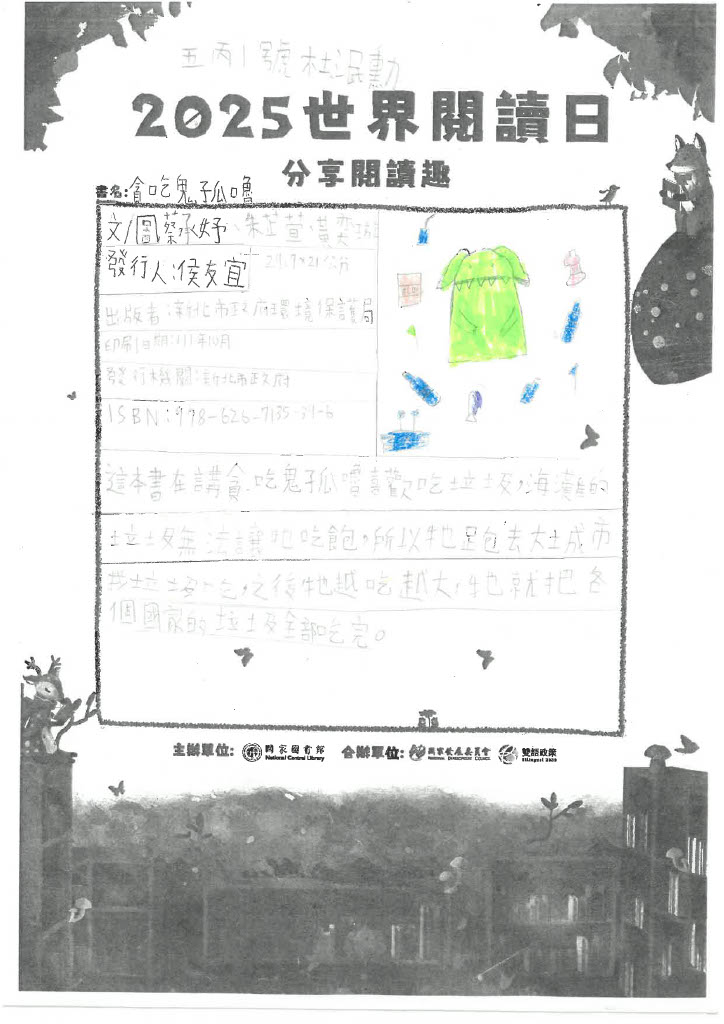 五丙1號杜泯勳
2025世界閱讀日
分享閱讀趣
書名:貪吃鬼孤嚕
文/圖蔡承妤、朱芷萱、黃奕
發行人:侯友宜 29.7×21公分
出版者:新北市政府環境保護局
印刷日期:111年10月
發行機關:新北市政府
ISBN:978-626-7135-31-6
這本書在講貪吃鬼孤嚕喜歡吃垃圾,海灘的
垃圾無法讓牠吃飽,所以牠跑去大城市
找垃圾吃,之後牠越吃越大,牠就把各
個國家的垃圾全部吃完。
主辦單位: 國家圖書館 合辦單位: 國家發展委員會 雙語政策
National Central Library NATIONAL DEVELOPMENT COUNCIL Bilingual 2030